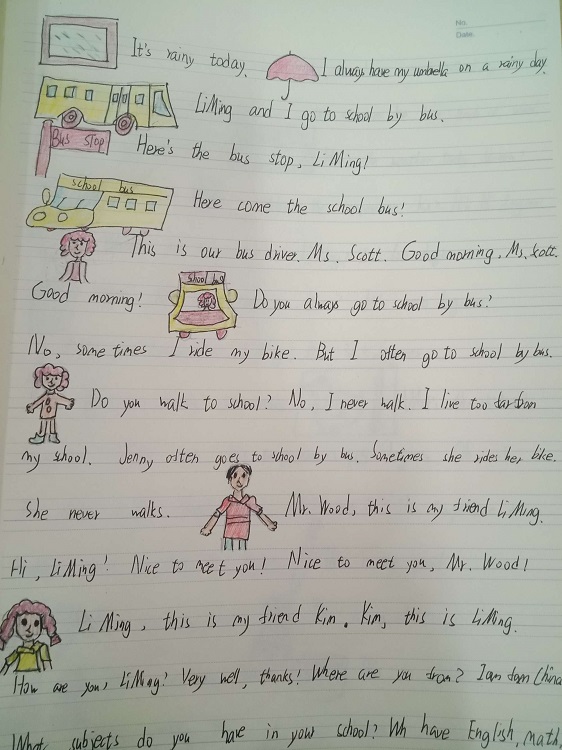 No.
Date.
It's rainy today. I always have my umbrella on a rainy day.
LiMing and I go to school by bus.
Bus Stop
Here's the bus stop, Li Ming!
school bus
Here come the school bus!
This is our bus driver. Ms. Scott. Good morning, Ms. Scott.
School bus
Good morning! Do you always go to school by bus?
No, some times I ride my bike. But I often go to school by bus.
Do you walk to school? No, I never walk. I live too far from
my school. Jenny often goes to school by bus. Sometimes she rides her bike.
She never walks. Mr. Wood, this is my friend Li Ming.
Hi, Li Ming! Nice to meet you! Nice to meet you, Mr. Wood!
Li Ming, this is my friend Kim. Kim, this is LiMing.
How are you, LiMing? Very well, thanks! Where are you from? I am from China
What subjects do you have in your school? Wh have English, math,